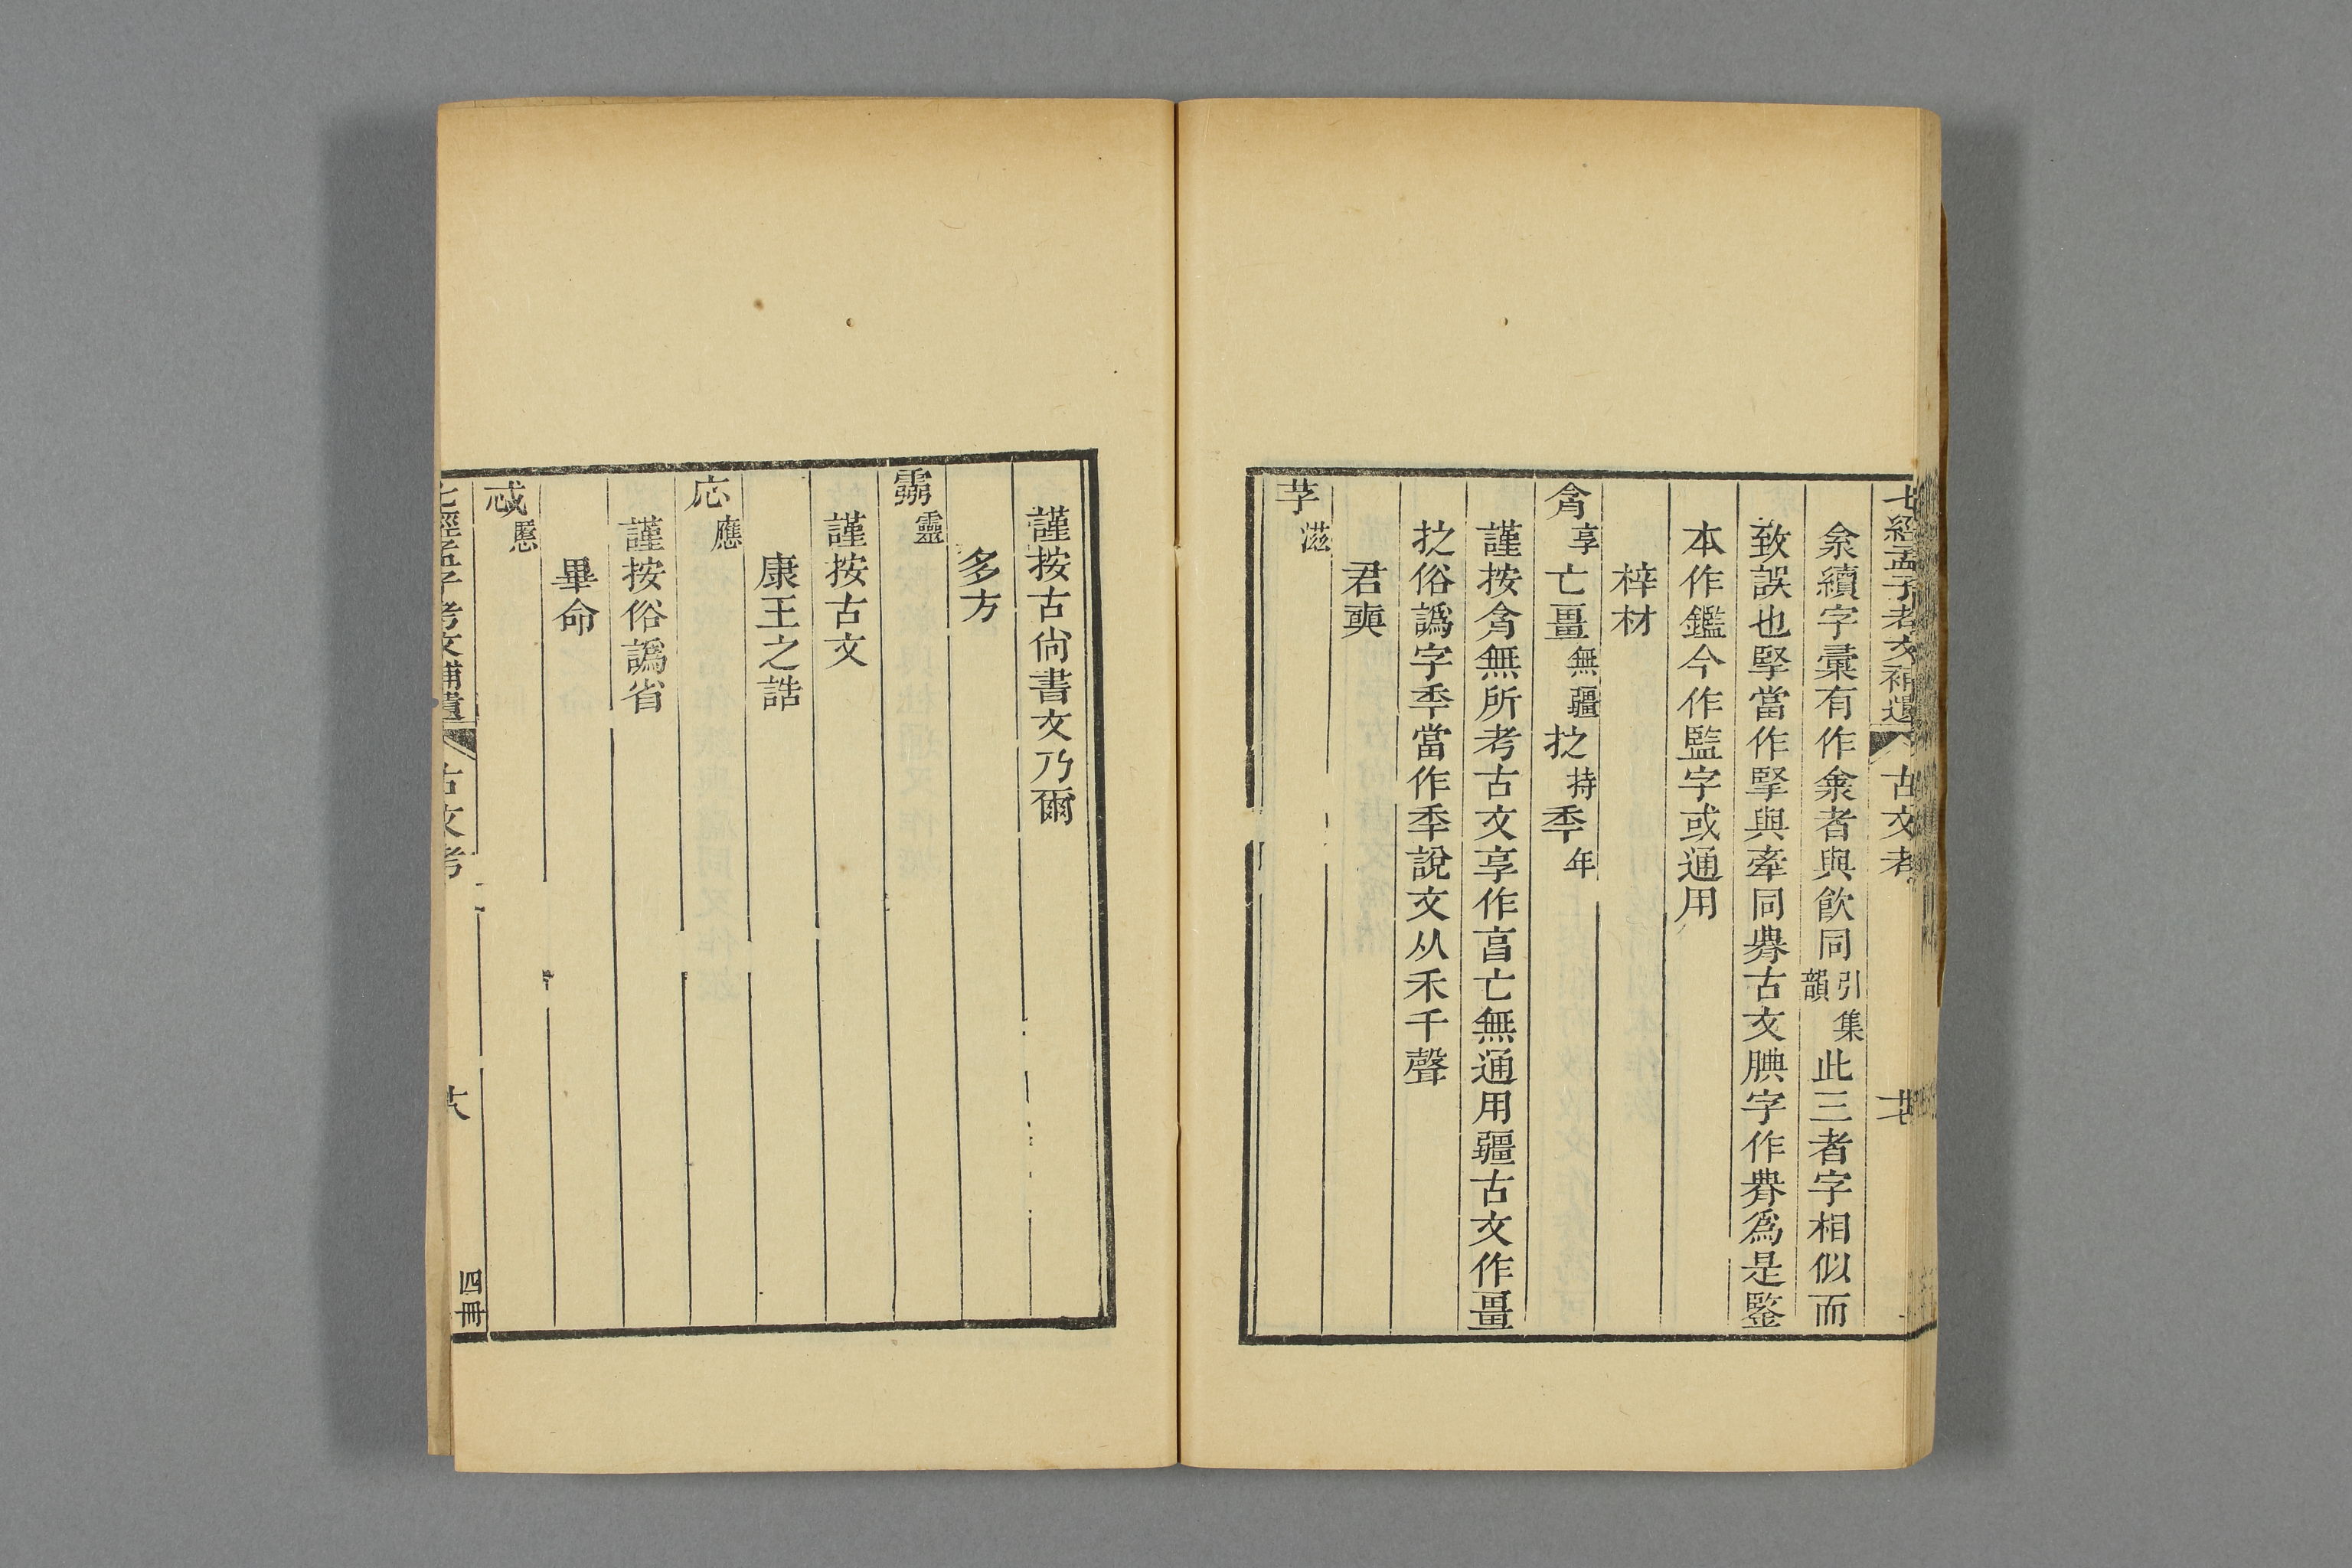 七經孟子考文補遺 古文考 廿七
㑒續字彙有作䬠者與飲同引集韻此三者字相似而
致誤也堅當作掔與牽同臩古文腆字作臩爲是鑒
本作鑑今作監字或通用
梓材
亯享亡畺無疆㧅持秊年
謹按亯無所考古文享作亯亡無通用疆古文作畺
㧅俗譌字秊當作秊說文从禾千聲
君奭
芓滋
謹按古尙書文乃爾
多方
霛靈
謹按古文
康王之誥
応應
謹按俗譌省
畢命
忒慝
七經孟子考文補遺 古文考 六 四冊